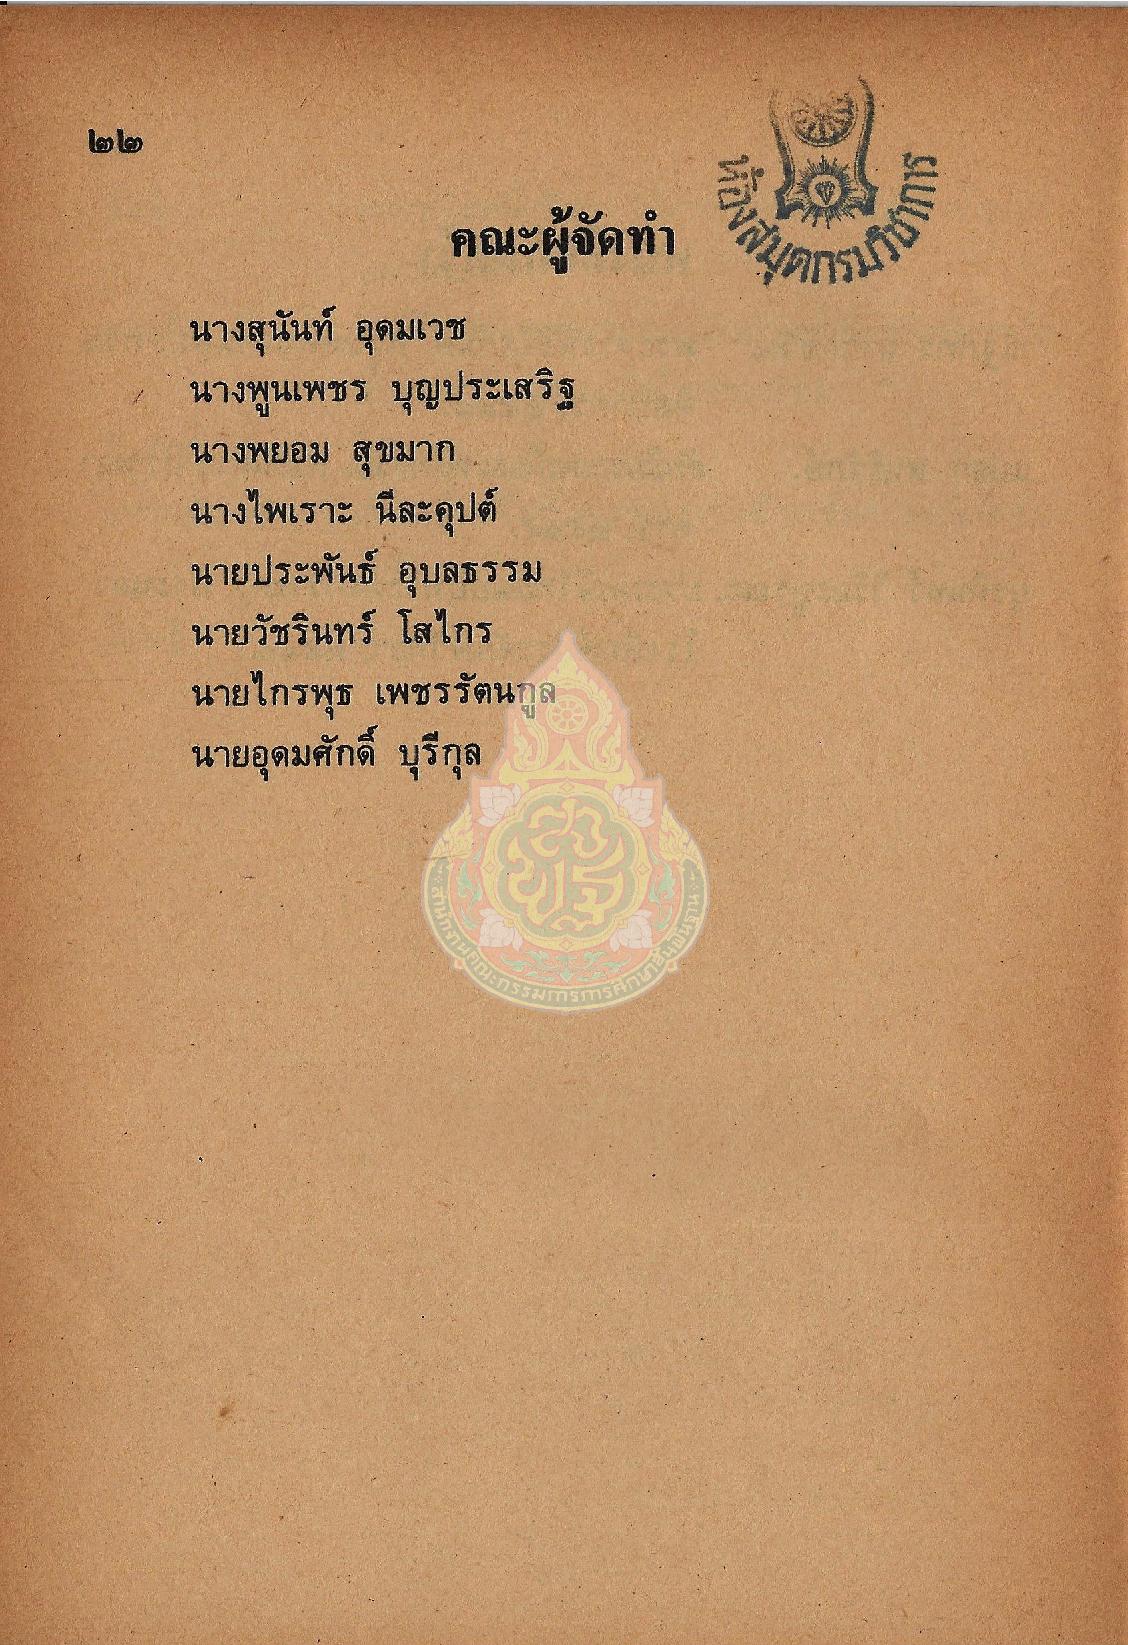 ๒๒
ห้องสมุดกรมวิชาการ
คณะผู้จัดทำ
นางสุนันท์ อุดมเวช
นางพูนเพชร บุญประเสริฐ
นางพยอม สุขมาก
นางไพเราะ นีละคุปต์
นายประพันธ์ อุบลธรรม
นายวัชรินทร์ โสไกร
นายไกรพุธ เพชรรัตนกูล
นายอุดมศักดิ์ บุรีกุล
สำนักงานคณะกรรมการการศึกษาขั้นพื้นฐาน